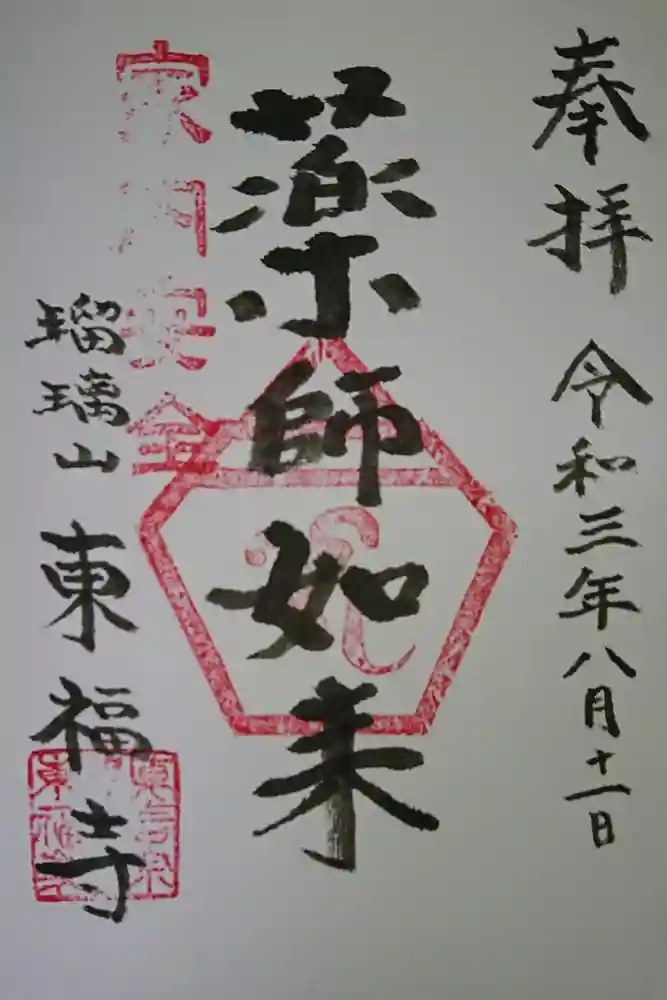 奉拝 令和三年八月十一日
薬師如来
家内安全
瑠璃山 東福寺